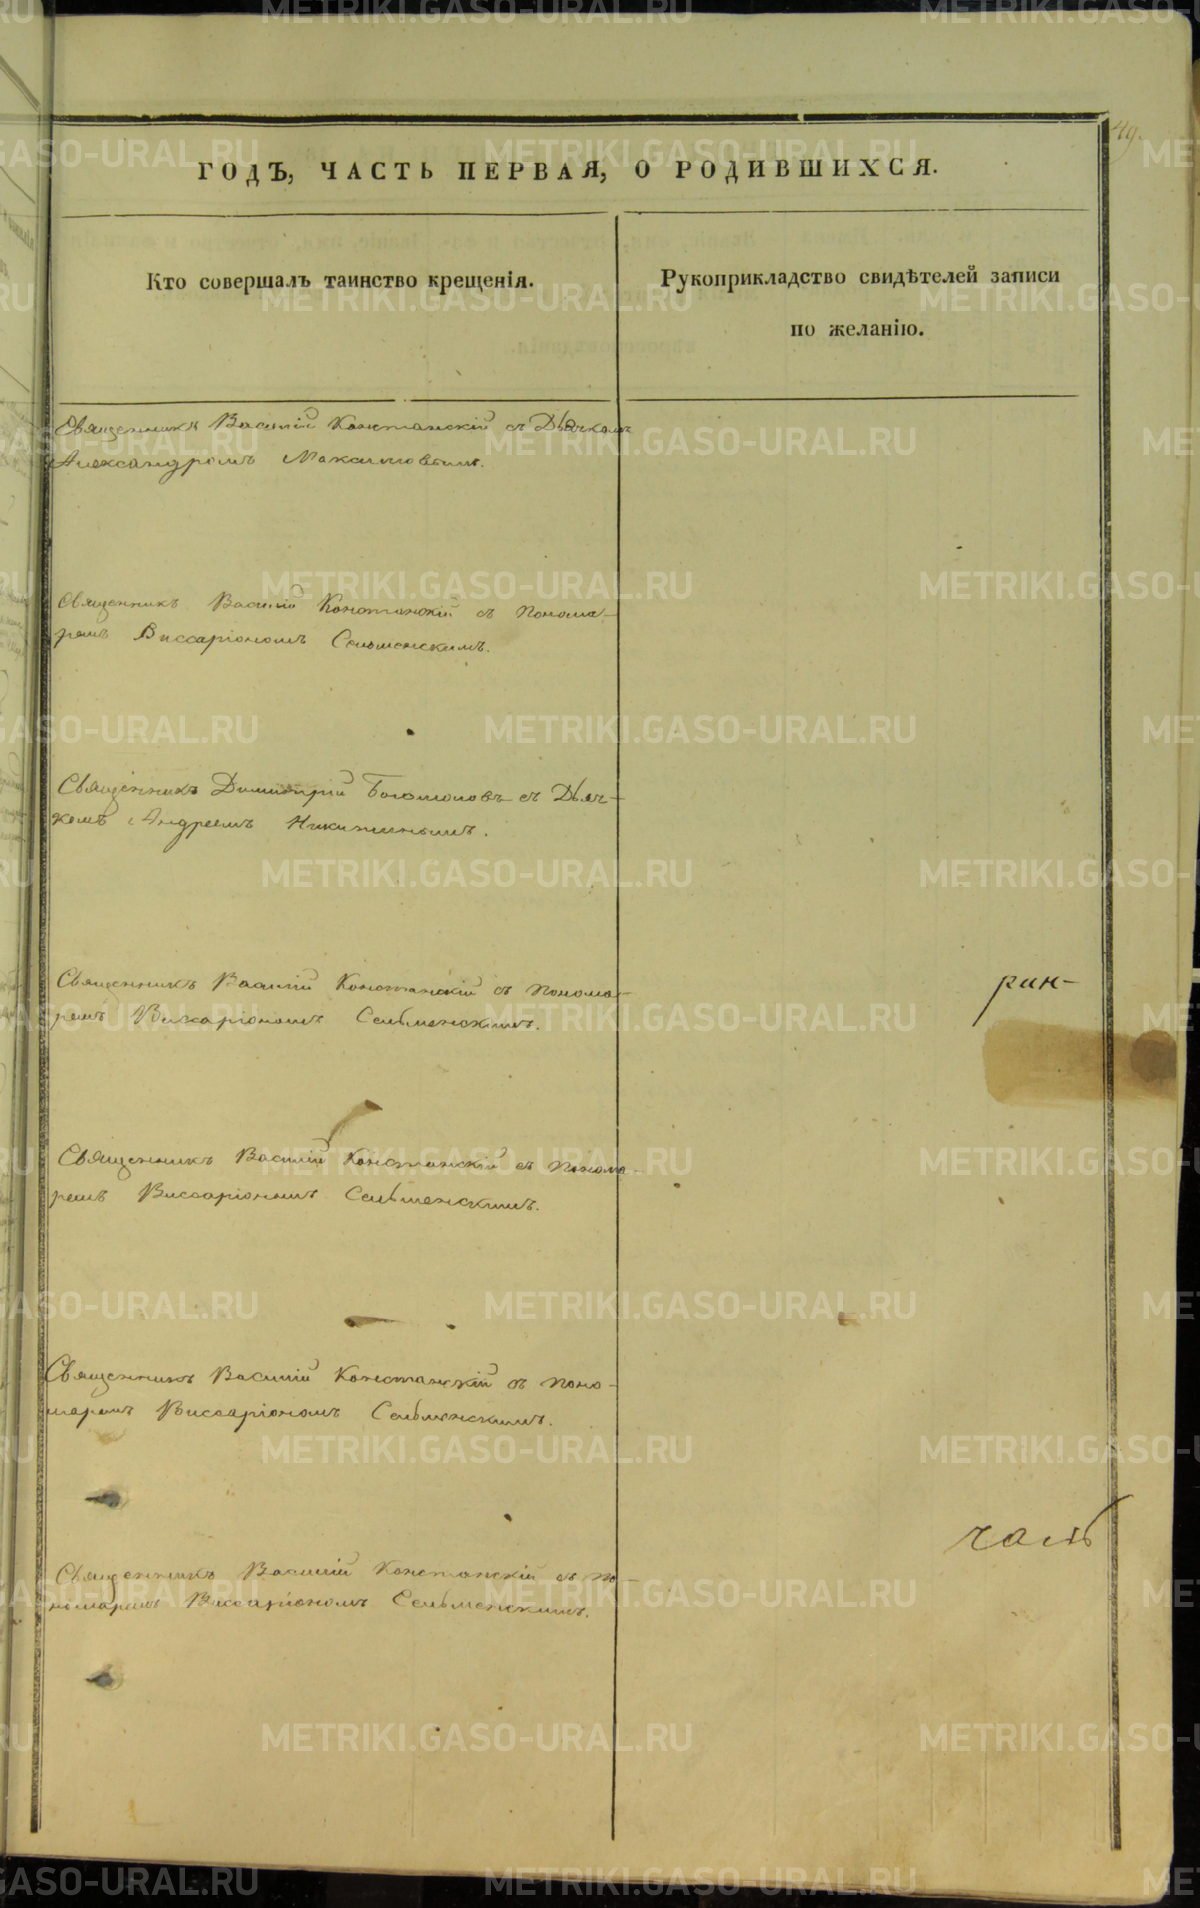 49.
ГОДЪ, ЧАСТЬ ПЕРВАЯ, О РОДИВШИХСЯ.
Кто совершалъ таинство крещенія.
Рукоприкладство свидѣтелей записи
по желанію.
Священникъ Василій Констанскій съ Дьячкомъ
Александромъ Максимовымъ.
Священникъ Василій Констанскій съ Понома-
ремъ Виссаріономъ Сельменскимъ.
Священникъ Димитрій Богомоловъ съ Дьяч-
комъ Андреемъ Никитинымъ.
Священникъ Василій Констанскій съ Понома-
ремъ Виссаріономъ Сельменскимъ.
ран-
Священникъ Василій Констанскій съ Понома-
ремъ Виссаріономъ Сельменскимъ.
Священникъ Василій Констанскій съ Поно-
маремъ Виссаріономъ Сельменскимъ.
Священникъ Василій Констанскій съ По-
номаремъ Виссаріономъ Сельменскимъ.
METRIKI.GASO-URAL.RU